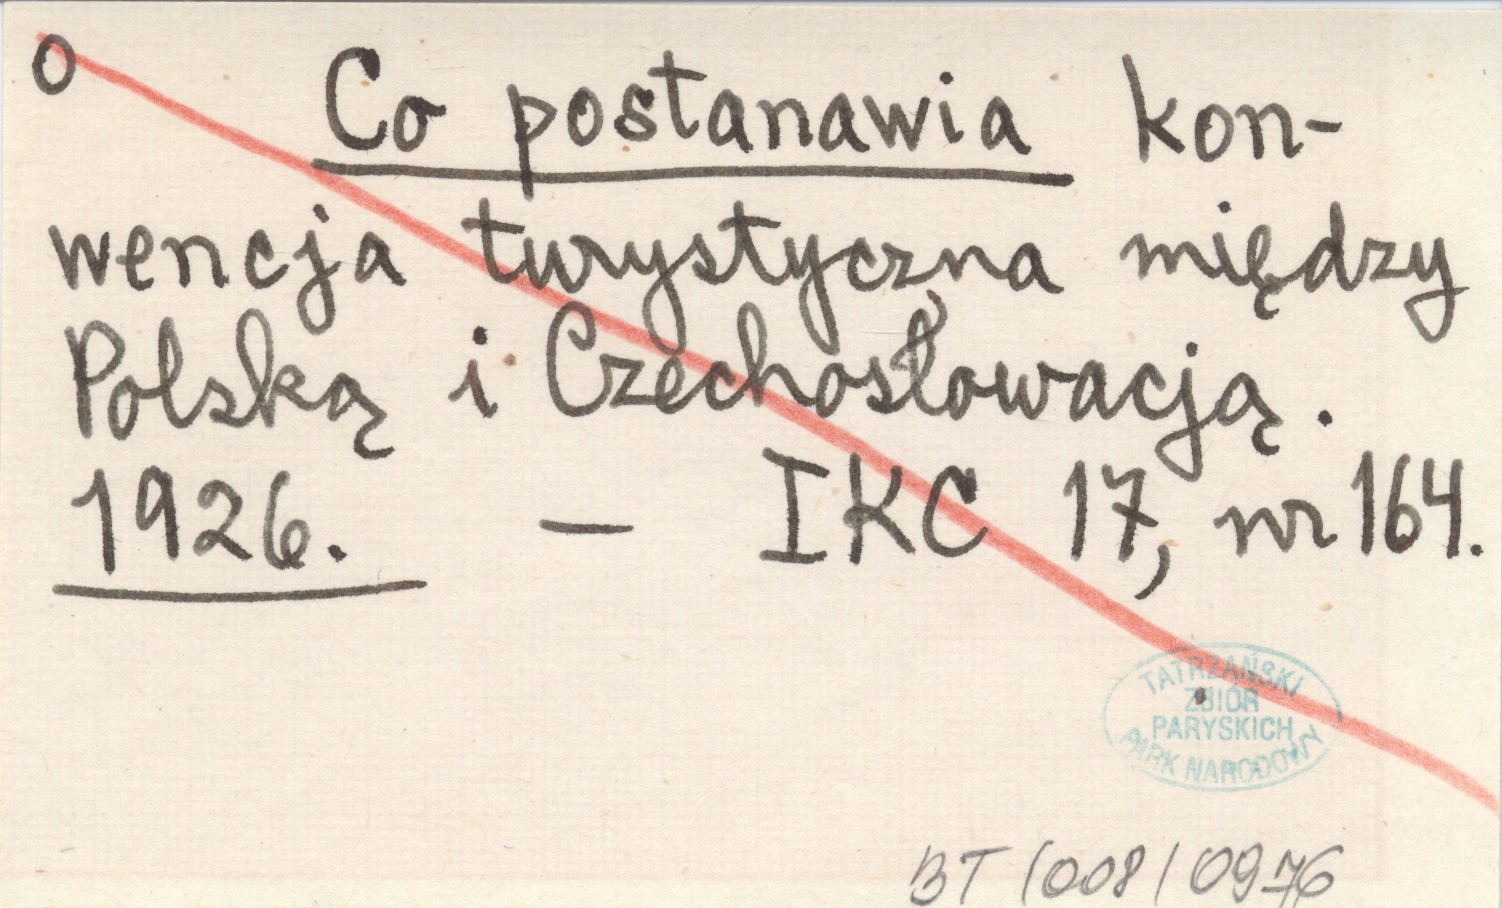 o Co postanawia kon-
wencja turystyczna między
Polską i Czechosłowacją.
1926. — IKC 17, nr 164.
TATRZAŃSKI
ZBIÓR
PARYSKICH
PARK NARODOWY
BT/008/0976